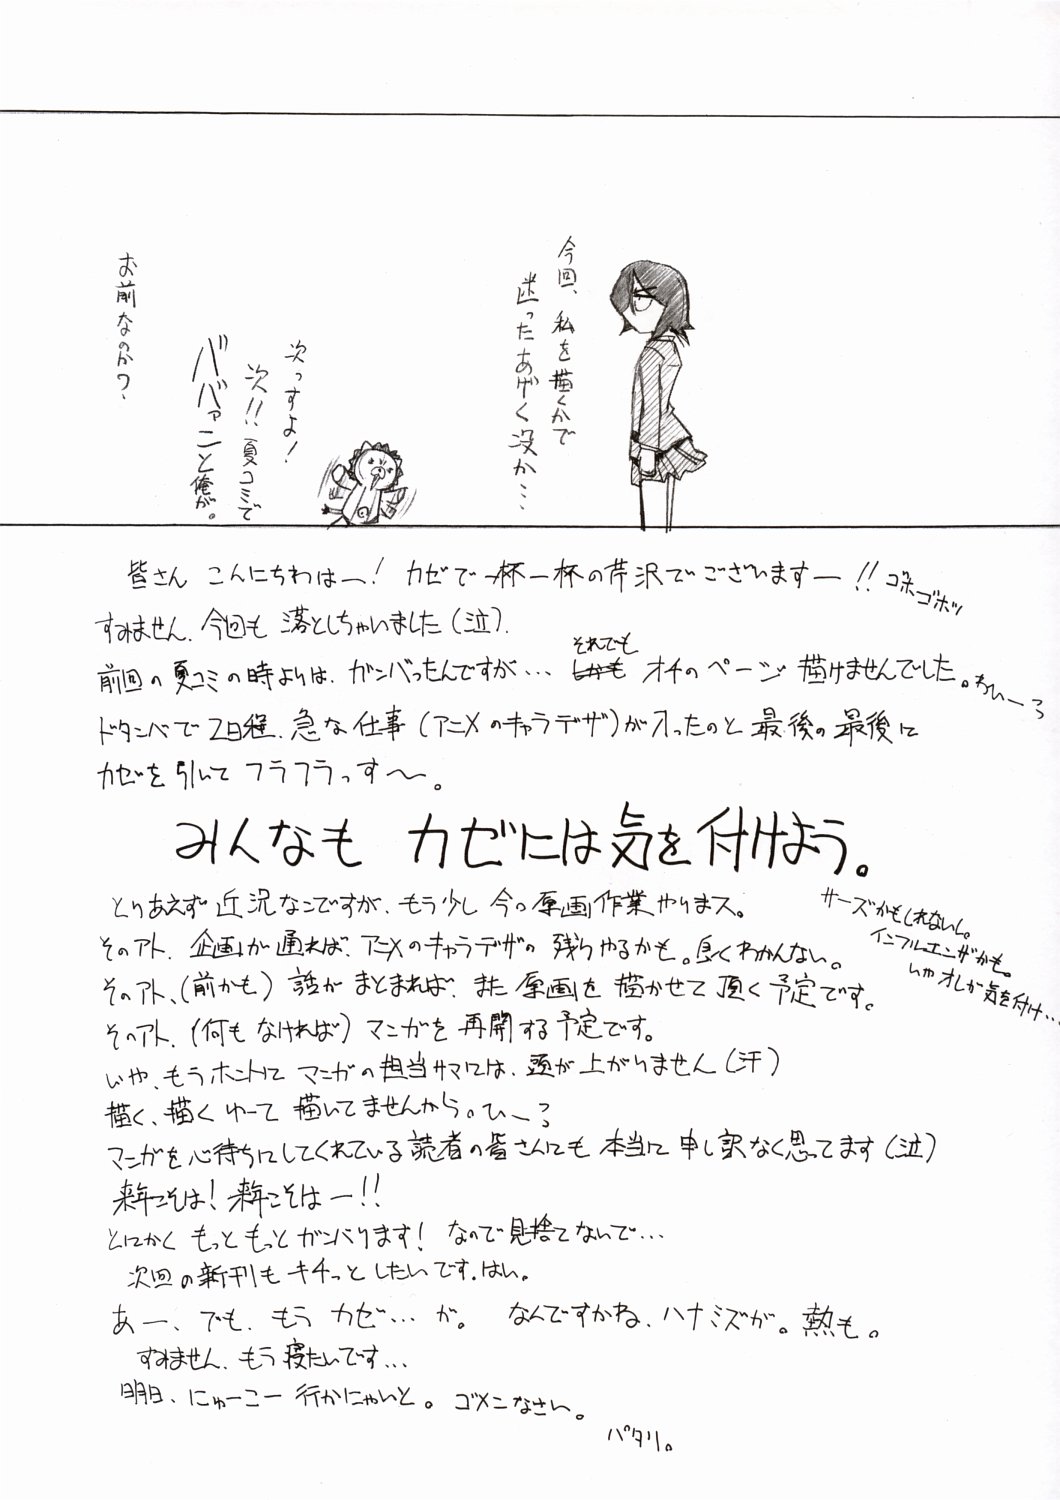 今回、私を描くかで
迷ったあげく没か…
次っすよ!
次!!夏コミで
ババァニと俺が。
お前なのか?
皆さん こんにちわはー! カゼで一杯一杯の芹沢でございますー!! ゴホゴホッ
すみません、今回も 落としちゃいました(泣).
前回の夏コミの時よりは、ガンバったんですが… それでも オチのページ 描けませんでした。
ドタンバで 2日程、急な仕事(アニメのキャラデザ)が入ったのと 最後の最後に
カゼを引いて フラフラっす〜。
みんなも カゼには気を付けよう。
とりあえず 近況なんですが、もう少し 今の原画作業やりまス。
そのアト、企画が通れば、アニメのキャラデザの 残りやるかも。良くわかんない。
そのアト、(前かも) 話が まとまれば、また 原画を 描かせて 頂く 予定です。
そのアト、(何も なければ) マンガを 再開する予定です。
サーズかもしれないし。
インフルエンザかも。
いや オレが気を付け…
いや、もうホントに マンガの担当サマには、頭が上がりません(汗)
描く、描く ゆーて 描いてませんから。ひーっ
マンガを心待ちにしてくれている読者の皆さんにも 本当に 申し訳なく思ってます(泣)
来年こそは! 来年こそはー!!
とにかく もっと もっと ガンバります! なので見捨てないで…
次回の新刊も キチっと したいです。はい。
あー、でも、もう カゼ…が。 なんですかね、ハナミズが。熱も。
すみません、もう 寝たいです…
明日、にゅーこー 行かにゃいと。ゴメンなさい。
パタリ。